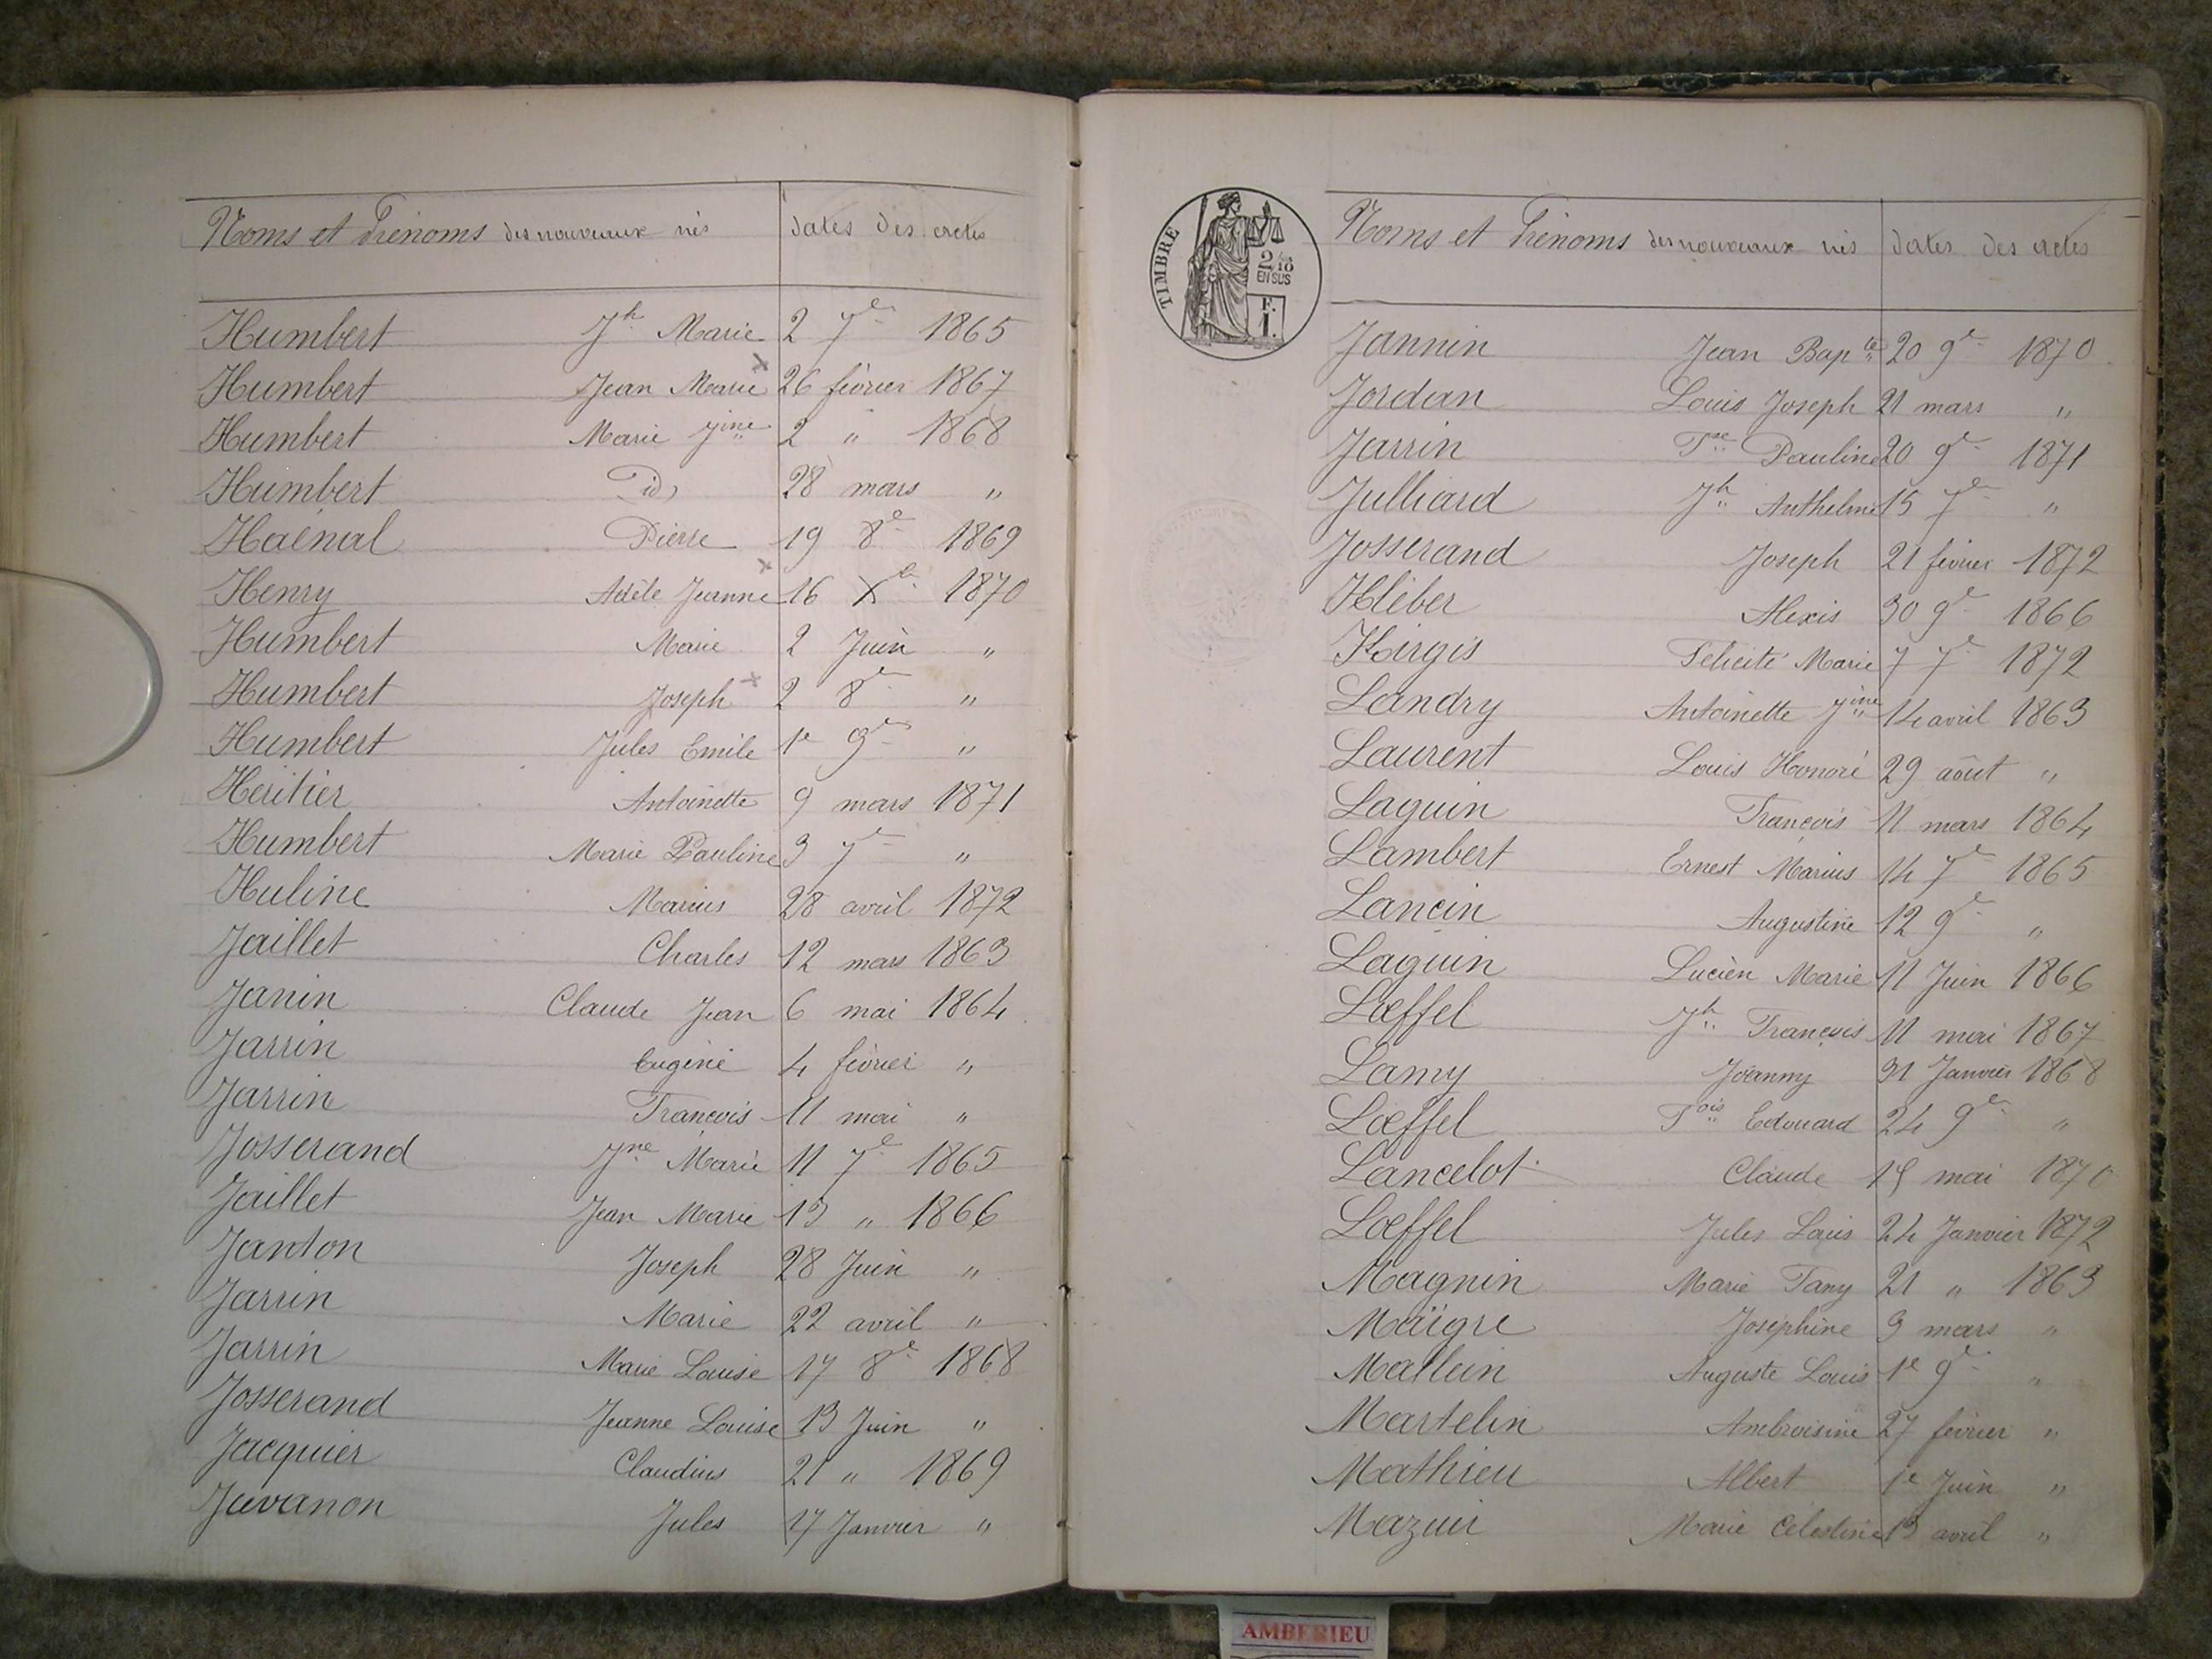 Noms et Prénoms des nouveaux nés dates des actes
Humbert Jh Marie 2 7e 1865
Humbert Jean Marie 26 février 1867
Humbert Marie Jine 2 " 1868
Humbert Pid) 28 mars "
Haënal Pierre 19 8e 1869
Henry Adèle Jeanne 16 Xe 1870
Humbert Marie 2 Juin "
Humbert Joseph 2 8e "
Humbert Jules Emile 1e 9e "
Héritier Antoinette 9 mars 1871
Humbert Marie Pauline 3 7e "
Huline Marius 28 avril 1872
Jaillet Charles 12 mars 1863
Janin Claude Jean 6 mai 1864
Jarrin Eugénie 4 février "
Jarrin François 11 mai "
Josserand Jne Marie 11 7e 1865
Jaillet Jean Marie 13 " 1866
Janton Joseph 28 Juin "
Jarrin Marie 22 avril "
Jarrin Marie Louise 17 8e 1868
Josserand Jeanne Louise 13 Juin "
Jacquier Claudius 21 " 1869
Juvanon Jules 17 Janvier "
TIMBRE
2/10
EN SUS
F.
1.
Noms et Prénoms des nouveaux nés dates des actes
Jannin Jean Bapte 20 9e 1870
Jordan Louis Joseph 21 mars "
Jarrin Fse Pauline 20 9e 1871
Julliard Jh Anthelme 15 7e "
Josserand Joseph 21 février 1872
Kléber Alexis 30 9e 1866
Kirgis Félicité Marie 7 7e 1872
Landry Antoinette Jine 14 avril 1863
Laurent Louis Honoré 29 août "
Laguin François 11 mars 1864
Lambert Ernest Marius 14 7e 1865
Lancin Augustine 12 9e "
Laguin Lucien Marie 11 Juin 1866
Lœffel Jh François 11 mai 1867
Lamy Joanny 31 Janvier 1868
Lœffel Fois Edouard 24 9e "
Lancelot Claude 15 mai 1870
Lœffel Jules Louis 24 Janvier 1872
Magnin Marie Fany 21 " 1863
Maïgre Joséphine 3 mars "
Mallein Auguste Louis 1e 9e "
Martelin Ambroisine 27 février "
Mathieu Albert 1e Juin "
Mazuir Marie Célestine 13 avril "
AMBERIEU